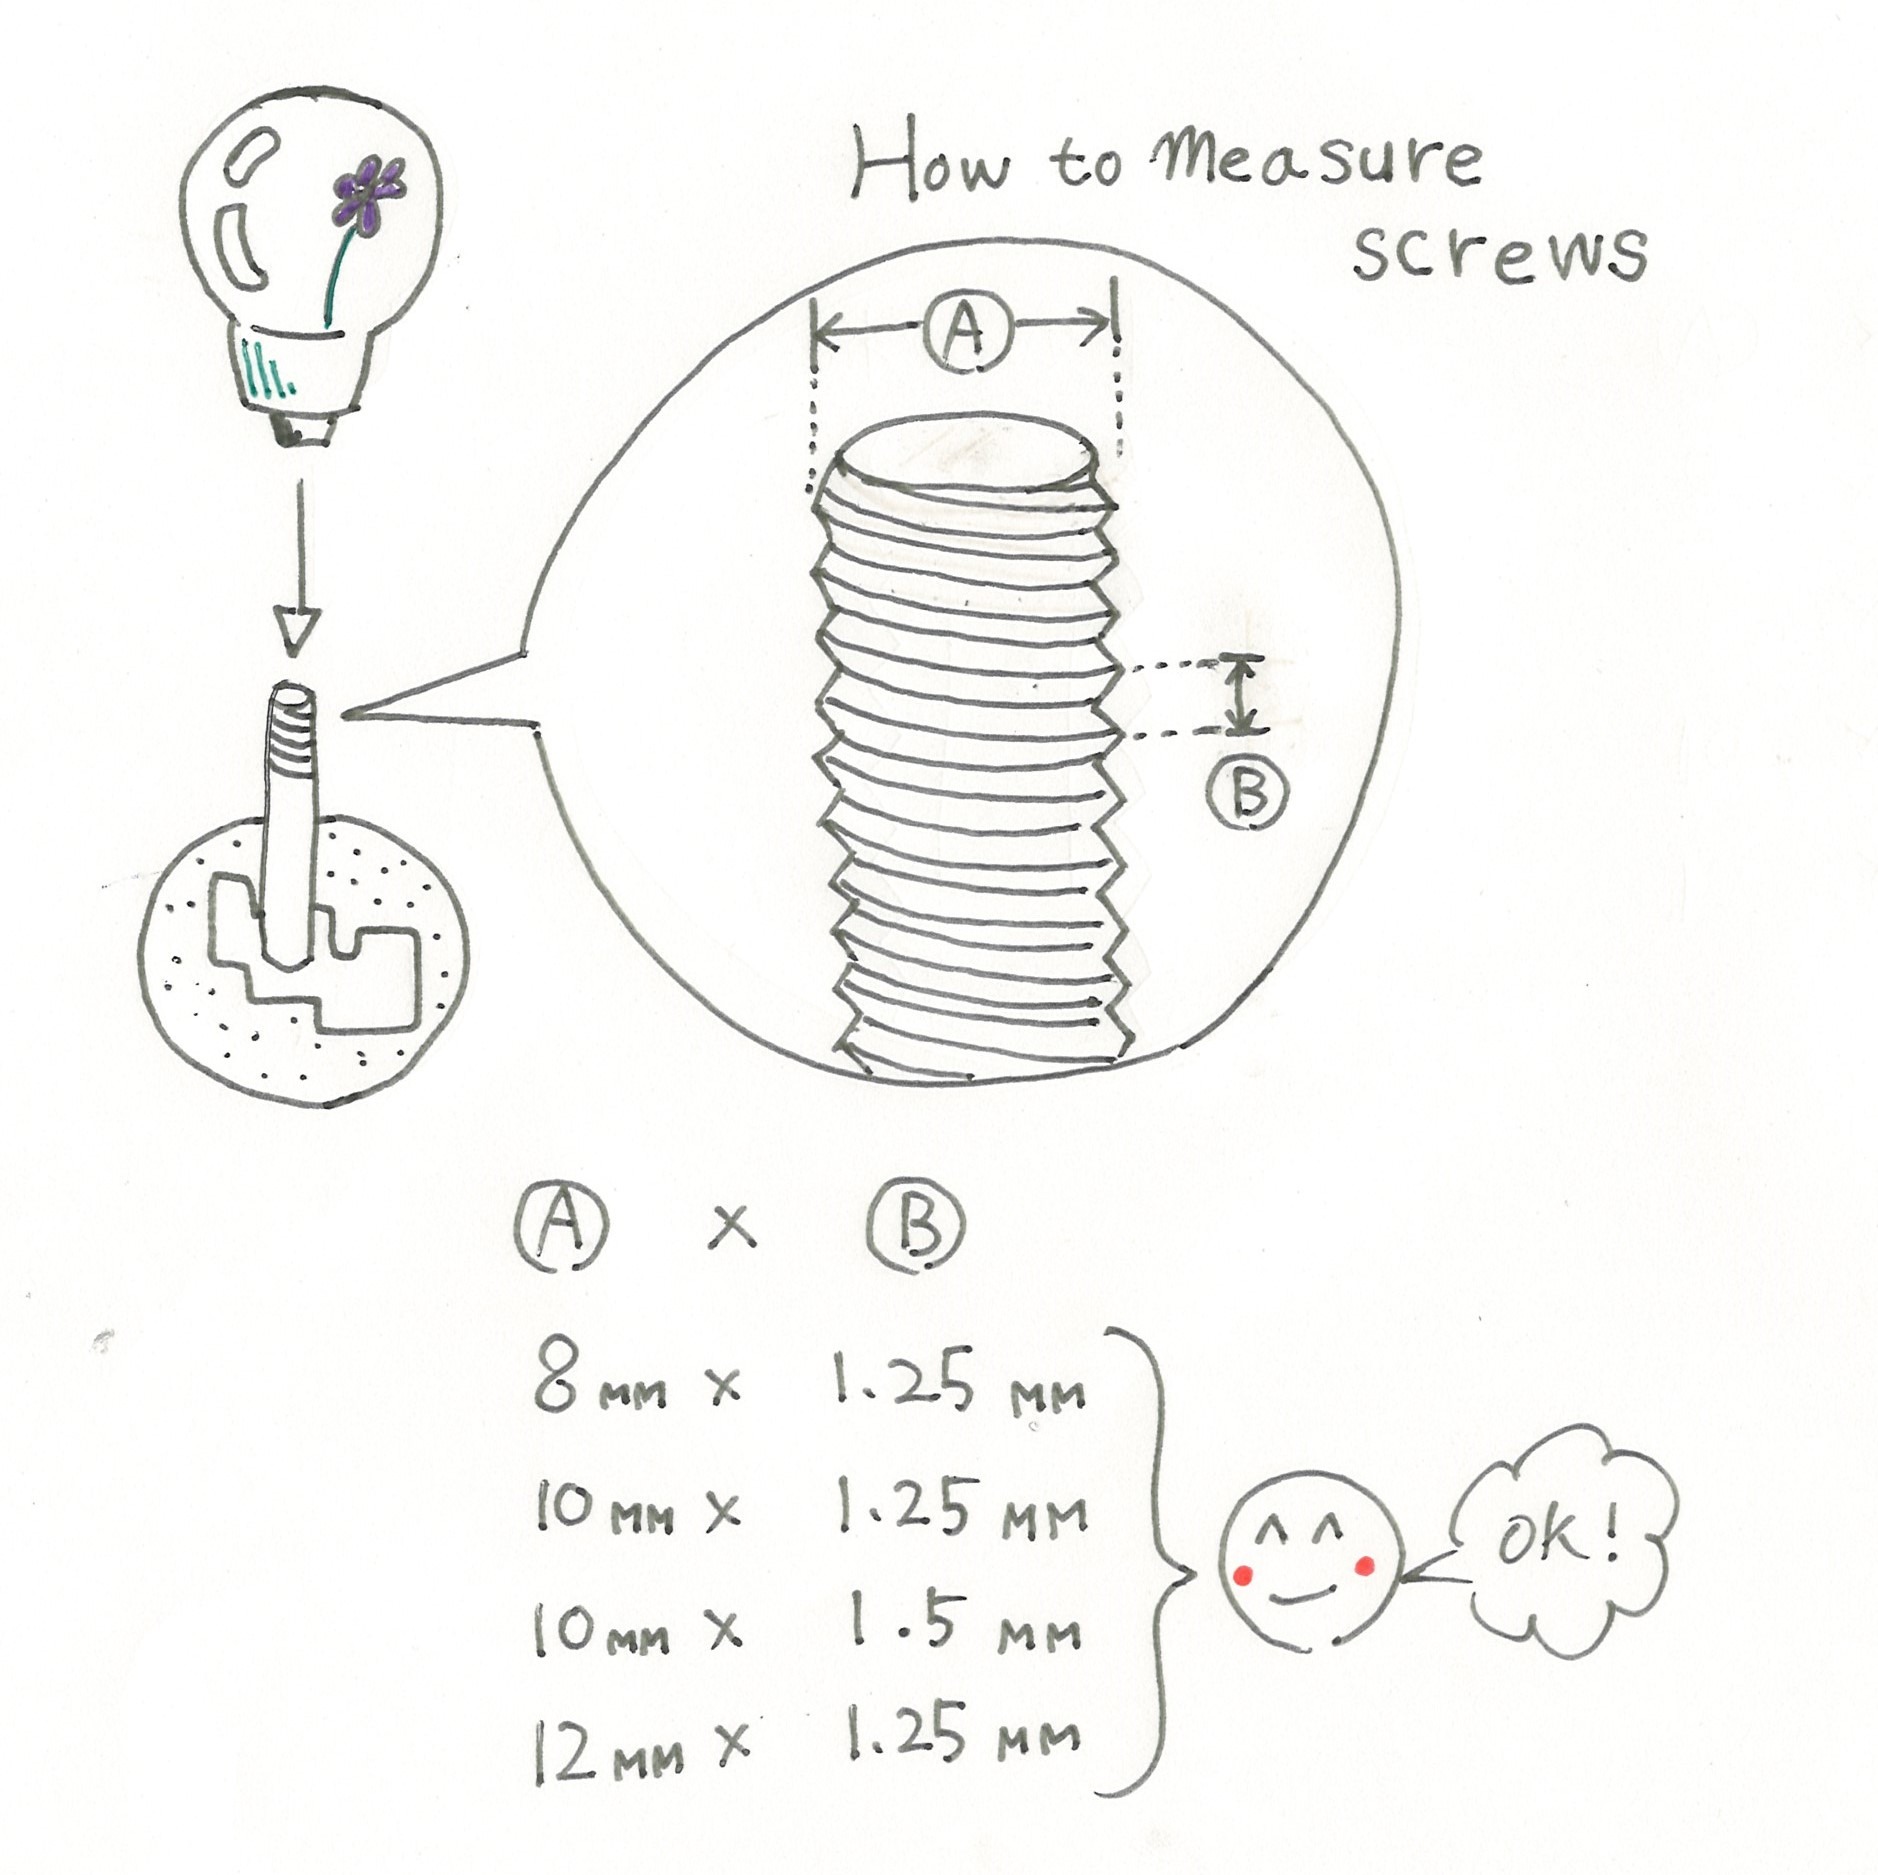 How to measure
screws
A
B
A x B
8mm x 1.25 mm
10mm x 1.25 mm
10mm x 1.5 mm
12mm x 1.25 mm
OK!